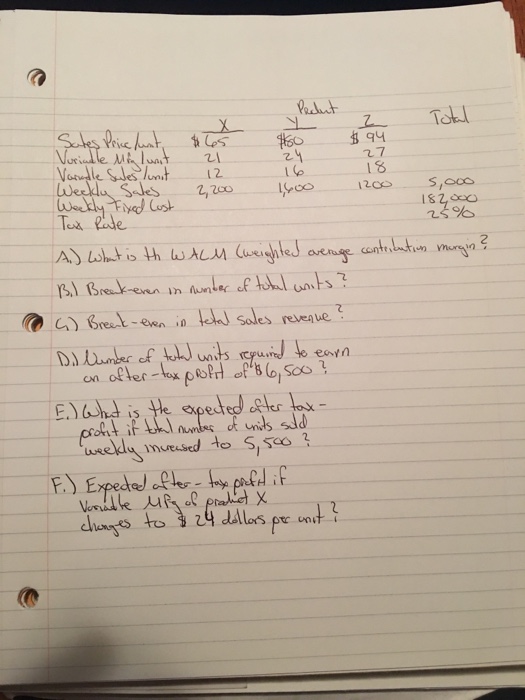 Product
X Y Z Total
Sales Price/unit $65 $80 $94
Variable Mfg/unit 21 24 27
Variable Sales/unit 12 16 18
Weekly Sales 2,200 1,600 1200 5,000
Weekly Fixed Cost 182,000
Tax Rate 25%
A.) What is th WACM (weighted average contribution margin?
B.) Break-even in number of total units?
C.) Break-even in total sales revenue?
D.) Number of total units required to earn
an after-tax profit of $6,500?
E.) What is the expected after tax-
profit if total number of units sold
weekly increased to 5,500?
F.) Expected after-tax profit if
Variable Mfg of product X
changes to $24 dollars per unit?